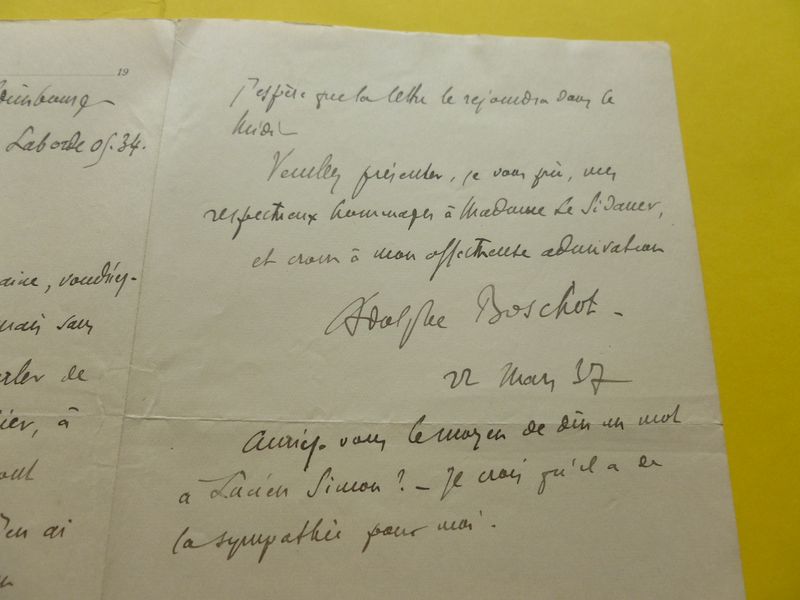 19
Laborde 05.34.
aine, vondriez-
mais sans
rler de
ier, à
ont
J'en ai
J'espère que la lettre le rejoindra dans le
Midi
Veuillez présenter, je vous prie, mes
respectueux hommages à Madame Le Sidaner,
et croire à mon affectueuse admiration
Adolphe Boschot -
22 Mars 37
Auriez-vous le moyen de dire un mot
à Lucien Simon? - Je crois qu'il a de
la sympathie pour moi.